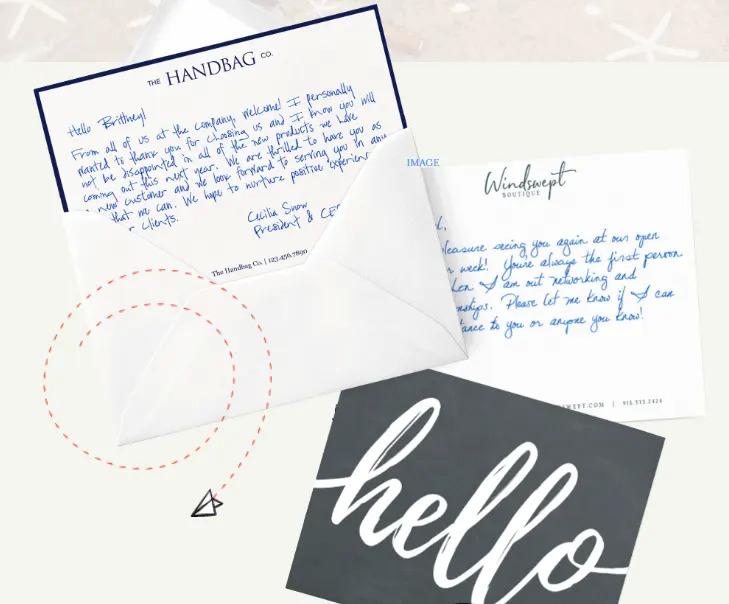 THE HANDBAG CO.
Hello Brittney!
From all of us at the company, welcome! I personally
wanted to thank you for choosing us and I know you will
not be disappointed in all of the new products we have
coming out this next year. We are thrilled to have you as
new customer and we look forward to serving you in any
that we can. We hope to nurture positive
clients.
Cecilia Snow
President &
The Handbag Co. | 123.456.7890
IMAGE
Windswept
BOUTIQUE
seeing you again at our open
week! You're always the first person
I am out networking and
Please let me know if I can
to you or anyone you know!
.COM | 915.575.2424
hello